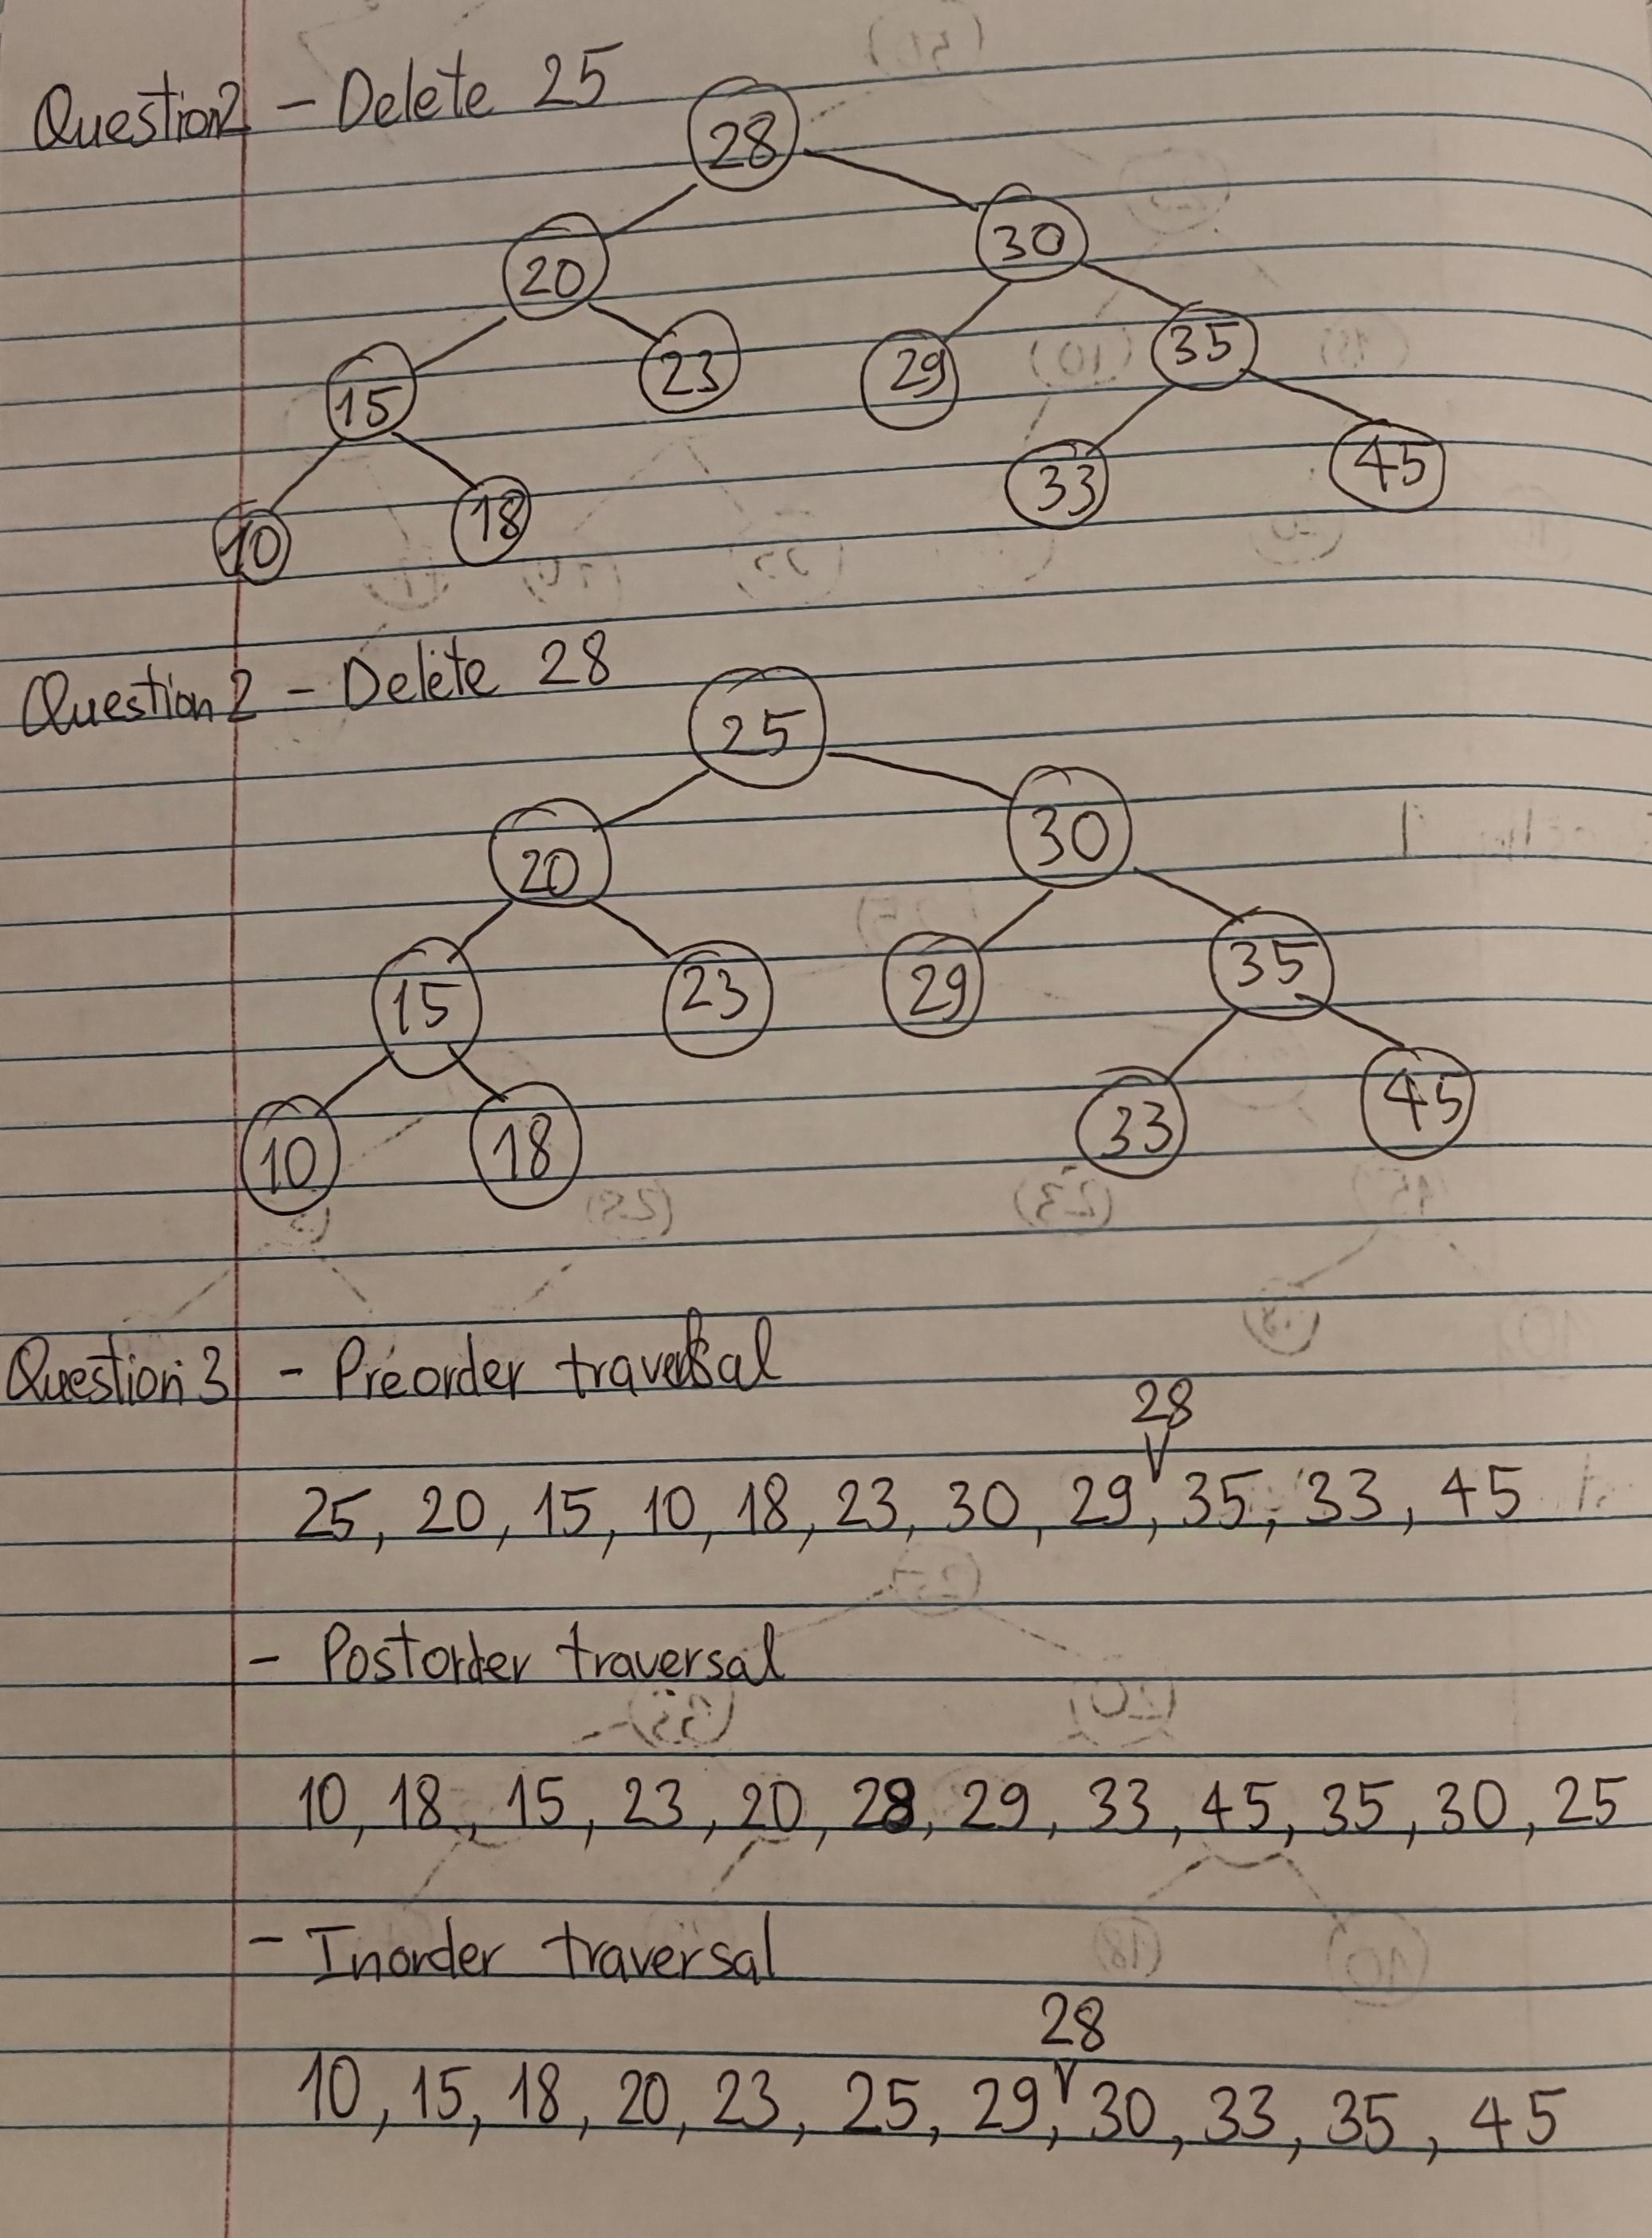 Question2 - Delete 25
28
20 30
15 23 29 35
10 18 33 45
Question 2 - Delete 28
25
20 30
15 23 29 35
10 18 33 45
Question 3 - Preorder traversal
28
25, 20, 15, 10, 18, 23, 30, 29, 35, 33, 45
- Postorder traversal
10, 18, 15, 23, 20, 28, 29, 33, 45, 35, 30, 25
- Inorder traversal
28
10, 15, 18, 20, 23, 25, 29, 30, 33, 35, 45